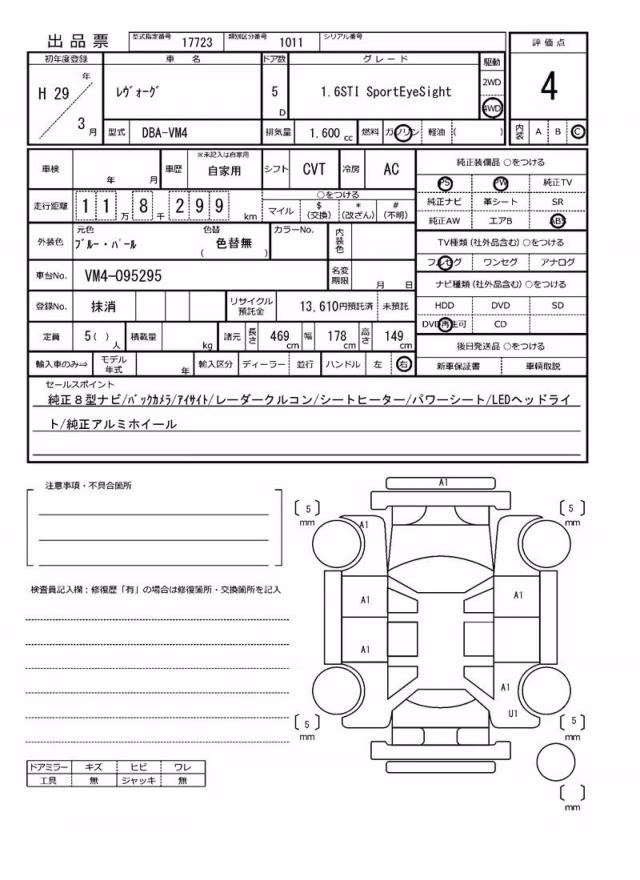 出品票 型式指定番号 17723 類別区分番号 1011 シリアル番号
初年度登録 車 名 ドア数 グレード 駆動 評価点
H 29 年 3 月 ﾚｳﾞｫｰｸﾞ 5 D 1.6STI SportEyeSight 2WD 4WD 4
型式 DBA-VM4 排気量 1.600 cc 燃料 ガソリン 軽油 ( ) 内装 A B C
車検 年 月 車歴 ※未記入は自家用 自家用 シフト CVT 冷房 AC 純正装備品 ○をつける
PS PW 純正TV
走行距離 1 1 万 8 千 2 9 9 km ○をつける
マイル $(交換) *(改ざん) #(不明)
純正ナビ 革シート SR
純正AW エアB ABS
外装色 元色 ﾌﾞﾙｰ・ﾊﾟｰﾙ 色替 ( 色替無 ) カラーNo. 内装色
TV種類 (社外品含む) ○をつける
フルセグ ワンセグ アナログ
車台No. VM4-095295 名変期限 月 日
ナビ種類 (社外品含む) ○をつける
登録No. 抹消 リサイクル預託金 13,610円預託済 未預託
HDD DVD SD
DVD再生可 CD
定員 5( ) 人 積載量 kg 諸元 長さ 469 cm 幅 178 cm 高さ 149 cm
後日発送品 ○をつける
輸入車のみ⇒ モデル年式 年 輸入区分 ディーラー 並行 ハンドル 左 右 新車保証書 車輌取説
セールスポイント
純正８型ナビ/ﾊﾞｯｸｶﾒﾗ/ｱｲｻｲﾄ/レーダークルコン/シートヒーター/パワーシート/LEDヘッドライ
ト/純正アルミホイール
注意事項・不具合箇所
A1
5 mm
5 mm
A1
検査員記入欄：修復歴「有」の場合は修復箇所・交換箇所を記入
A1 A1
A1
A1
U1
5 mm
5 mm
ドアミラー キズ ヒビ ワレ
工具 無 ジャッキ 無
mm